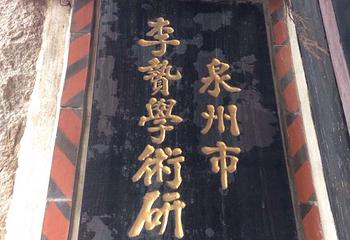 泉州市
李贄學術研